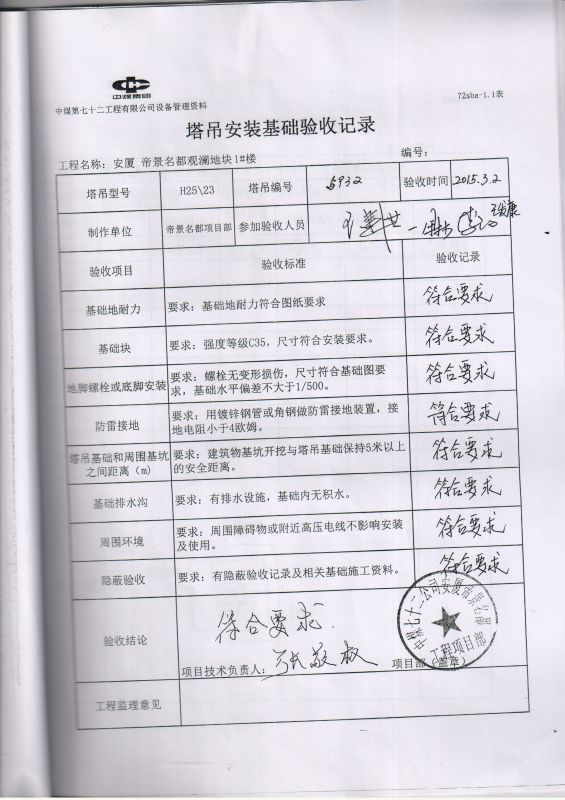 中煤集团
中煤第七十二工程有限公司设备管理资料
72sba-1.1表
塔吊安装基础验收记录
工程名称：安厦 帝景名都观澜地块1#楼 编号：
塔吊型号 H25\23 塔吊编号 5932 验收时间 2015.3.2
制作单位 帝景名都项目部 参加验收人员
验收项目 验收标准 验收记录
基础地耐力 要求：基础地耐力符合图纸要求 符合要求
基础块 要求：强度等级C35，尺寸符合安装要求。 符合要求
地脚螺栓或底脚安装 要求：螺栓无变形损伤，尺寸符合基础图要
求，基础水平偏差不大于1/500。 符合要求
防雷接地 要求：用镀锌钢管或角钢做防雷接地装置，接
地电阻小于4欧姆。 符合要求
塔吊基础和周围基坑
之间距离（m） 要求：建筑物基坑开挖与塔吊基础保持5米以上
的安全距离。 符合要求
基础排水沟 要求：有排水设施，基础内无积水。 符合要求
周围环境 要求：周围障碍物或附近高压电线不影响安装
及使用。 符合要求
隐蔽验收 要求：有隐蔽验收记录及相关基础施工资料。 符合要求
验收结论 符合要求.
项目技术负责人： 张敬权 项目部（盖章）
中煤七十二公司安厦帝景名都
工程项目部
工程监理意见